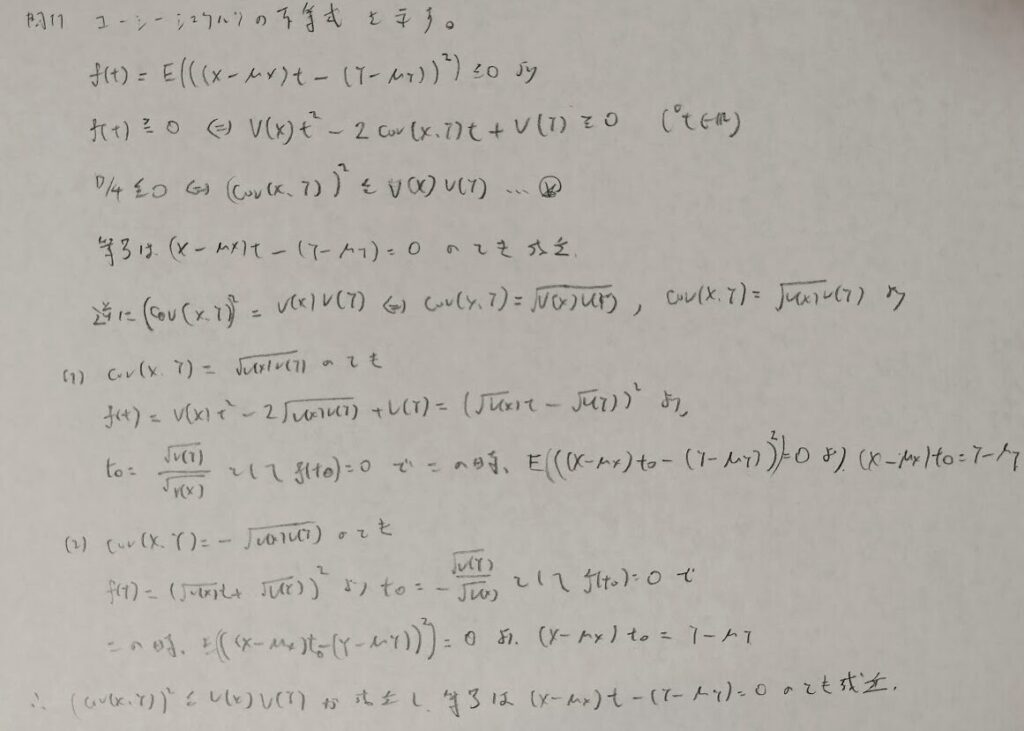 問11 コーシーシュワルツの不等式を示す。
f(t) = E(((X-μx)t - (Y-μY))²) ≧0 より
f(t) ≧ 0 ⇔ V(X)t² - 2 cov(X,Y)t + V(Y) ≧ 0 (∀t∈ℝ)
D/4 ≦0 ⇔ (cov(X,Y))² ≦ V(X)V(Y) …
等号は (X-μx)t - (Y-μY)=0 のとき成立.
逆に (Cov(X,Y))² = V(X)V(Y) ⇔ cov(X,Y) = √V(X)V(Y) , cov(X,Y) = √V(X)V(Y) より
(1) cov(X,Y) = √V(X)V(Y) のとき
f(t) = V(X)t² - 2√V(X)V(Y) + V(Y) = (√V(X)t - √V(Y))² より,
t₀ = √V(Y)/√V(X) として f(t₀)=0 でこの時、E(((X-μx)t₀ - (Y-μY))²)=0 より (X-μx)t₀=Y-μY
(2) cov(X,Y) = - √V(X)V(Y) のとき
f(t) = (√V(X)t + √V(Y))² より t₀ = - √V(Y)/√V(X) として f(t₀)=0 で
この時、E(((X-μx)t₀-(Y-μY))²)=0 より. (X-μx)t₀ = Y-μY
∴ (cov(X,Y))² ≦ V(X)V(Y) が成立し、等号は (X-μx)t-(Y-μY)=0 のとき成立.